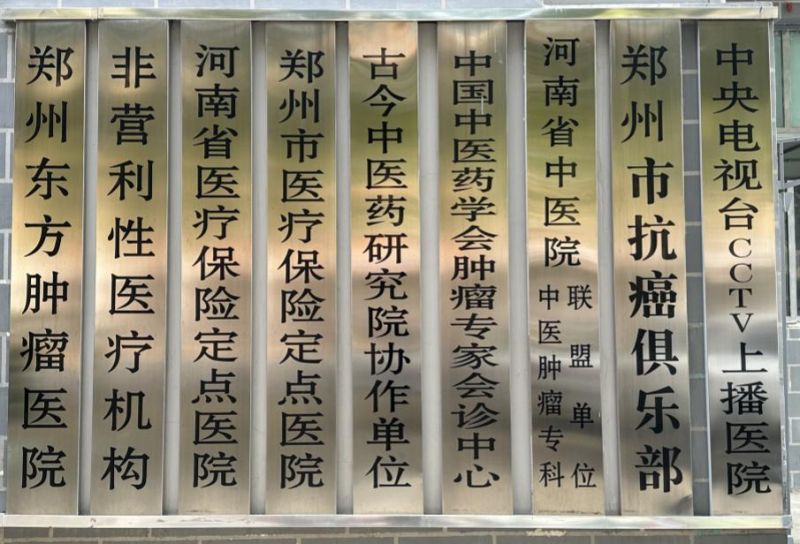 郑州东方肿瘤医院
非营利性医疗机构
河南省医疗保险定点医院
郑州市医疗保险定点医院
古今中医药研究院协作单位
中国中医药学会肿瘤专家会诊中心
河南省中医院
联盟单位
中医肿瘤专科
郑州市抗癌俱乐部
中央电视台CCTV上播医院